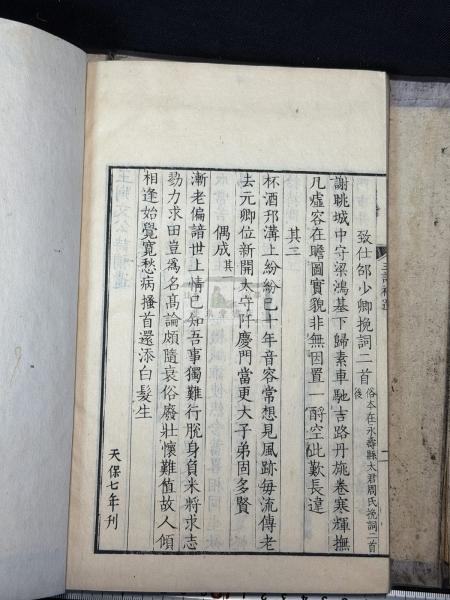 致仕邵少卿挽詞二首 俗本在永壽縣太君周氏挽詞二首後
謝眺城中守梁鴻基下歸素車馳吉路丹旐卷寒輝撫
几虛容在瞻圖實貌非無因置一酹空此歎長違
其二
杯酒邗溝上紛紛已十年音容常想見風跡每流傳老
去元卿位新開太守阡慶門當更大子弟固多賢
偶成 其
漸老偏諳世上情已知吾事獨難行脫身負米將求志
勠力求田豈為名高論頗隨衰俗廢壯懷難值故人傾
相逢始覺寬愁病搔首還添白髮生
天保七年刊